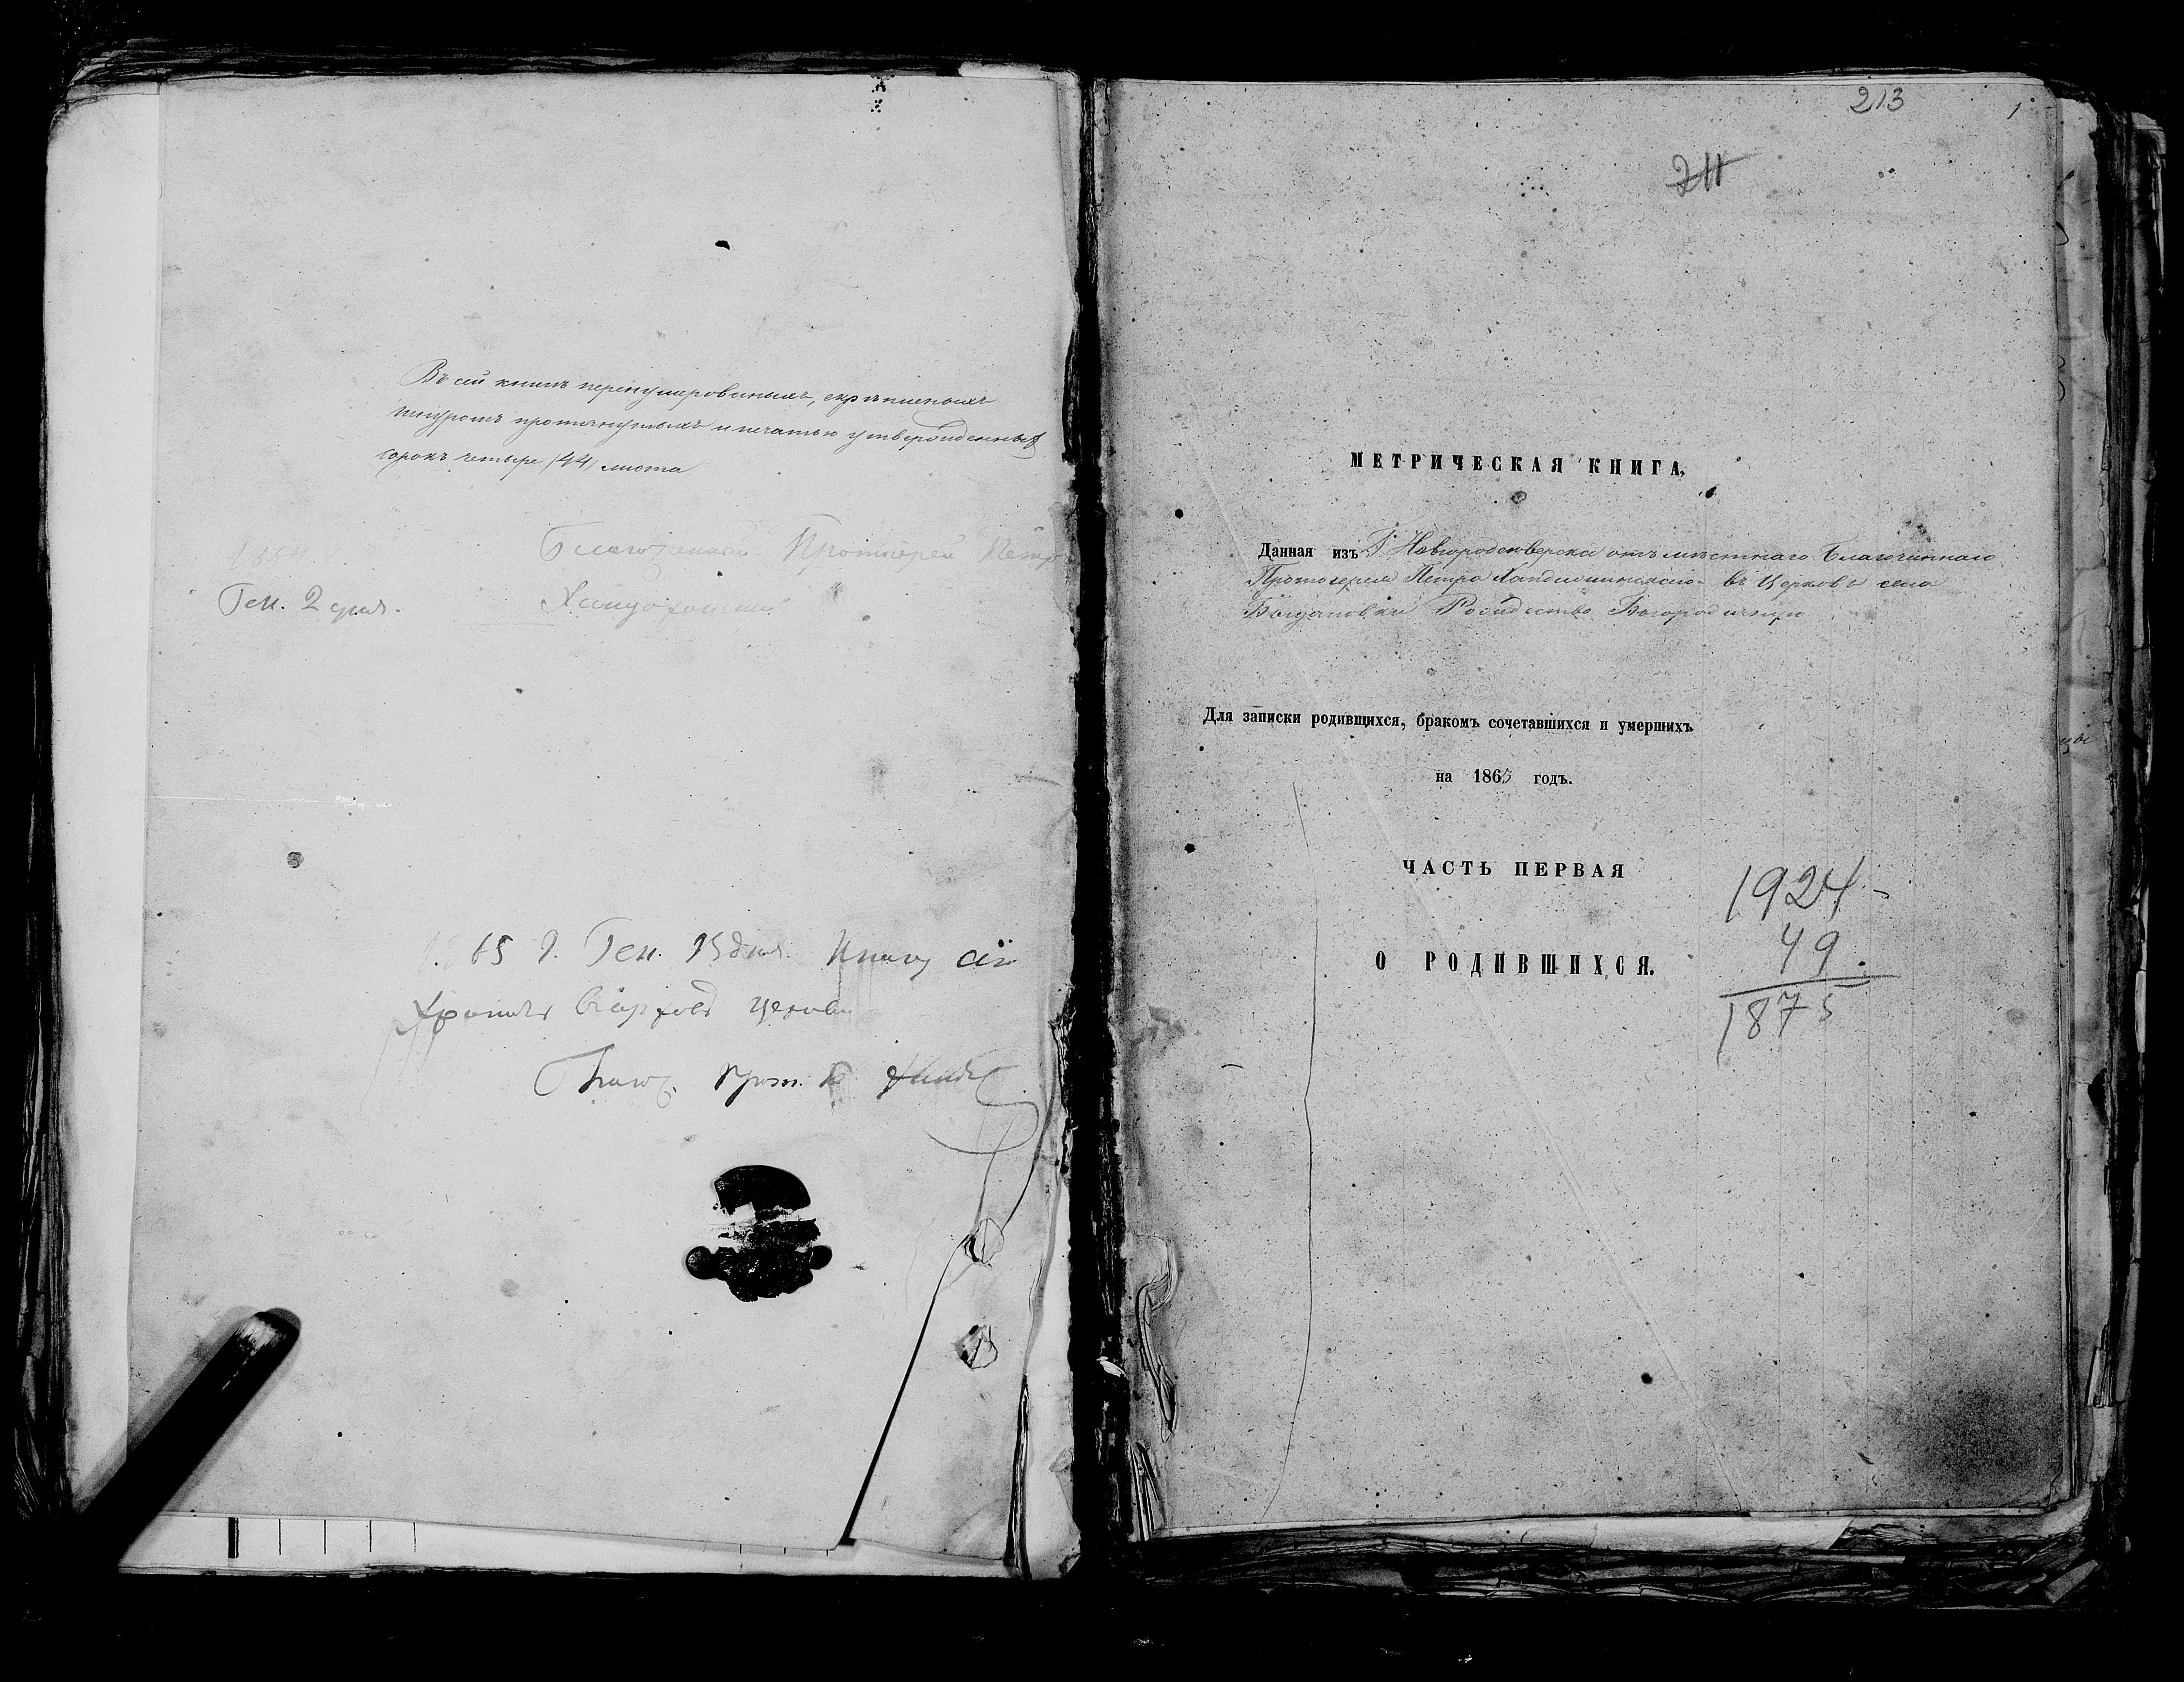 Въ сей книгѣ перенумерованныхъ, скрѣпленныхъ
шнуромъ протянутыхъ и печатью утвержденныхъ
сорокъ четыре (44) листа
Благочинный Протоіерей Петръ
Ген. 2 дня.
65 г. Ген. 15 дня. Книгу сію
хранить въ церкви
Благоч. Прот. П.
213
1
211
МЕТРИЧЕСКАЯ КНИГА,
Данная изъ Г. Новгородсѣверска отъ мѣстнаго Благочиннаго
Протоіерея Петра въ Церковь села
Богдановки Рождество Богородичную
Для записки родившихся, бракомъ сочетавшихся и умершихъ
на 1865 годъ.
ЧАСТЬ ПЕРВАЯ
О РОДИВШИХСЯ.
1924 -
49.
1875